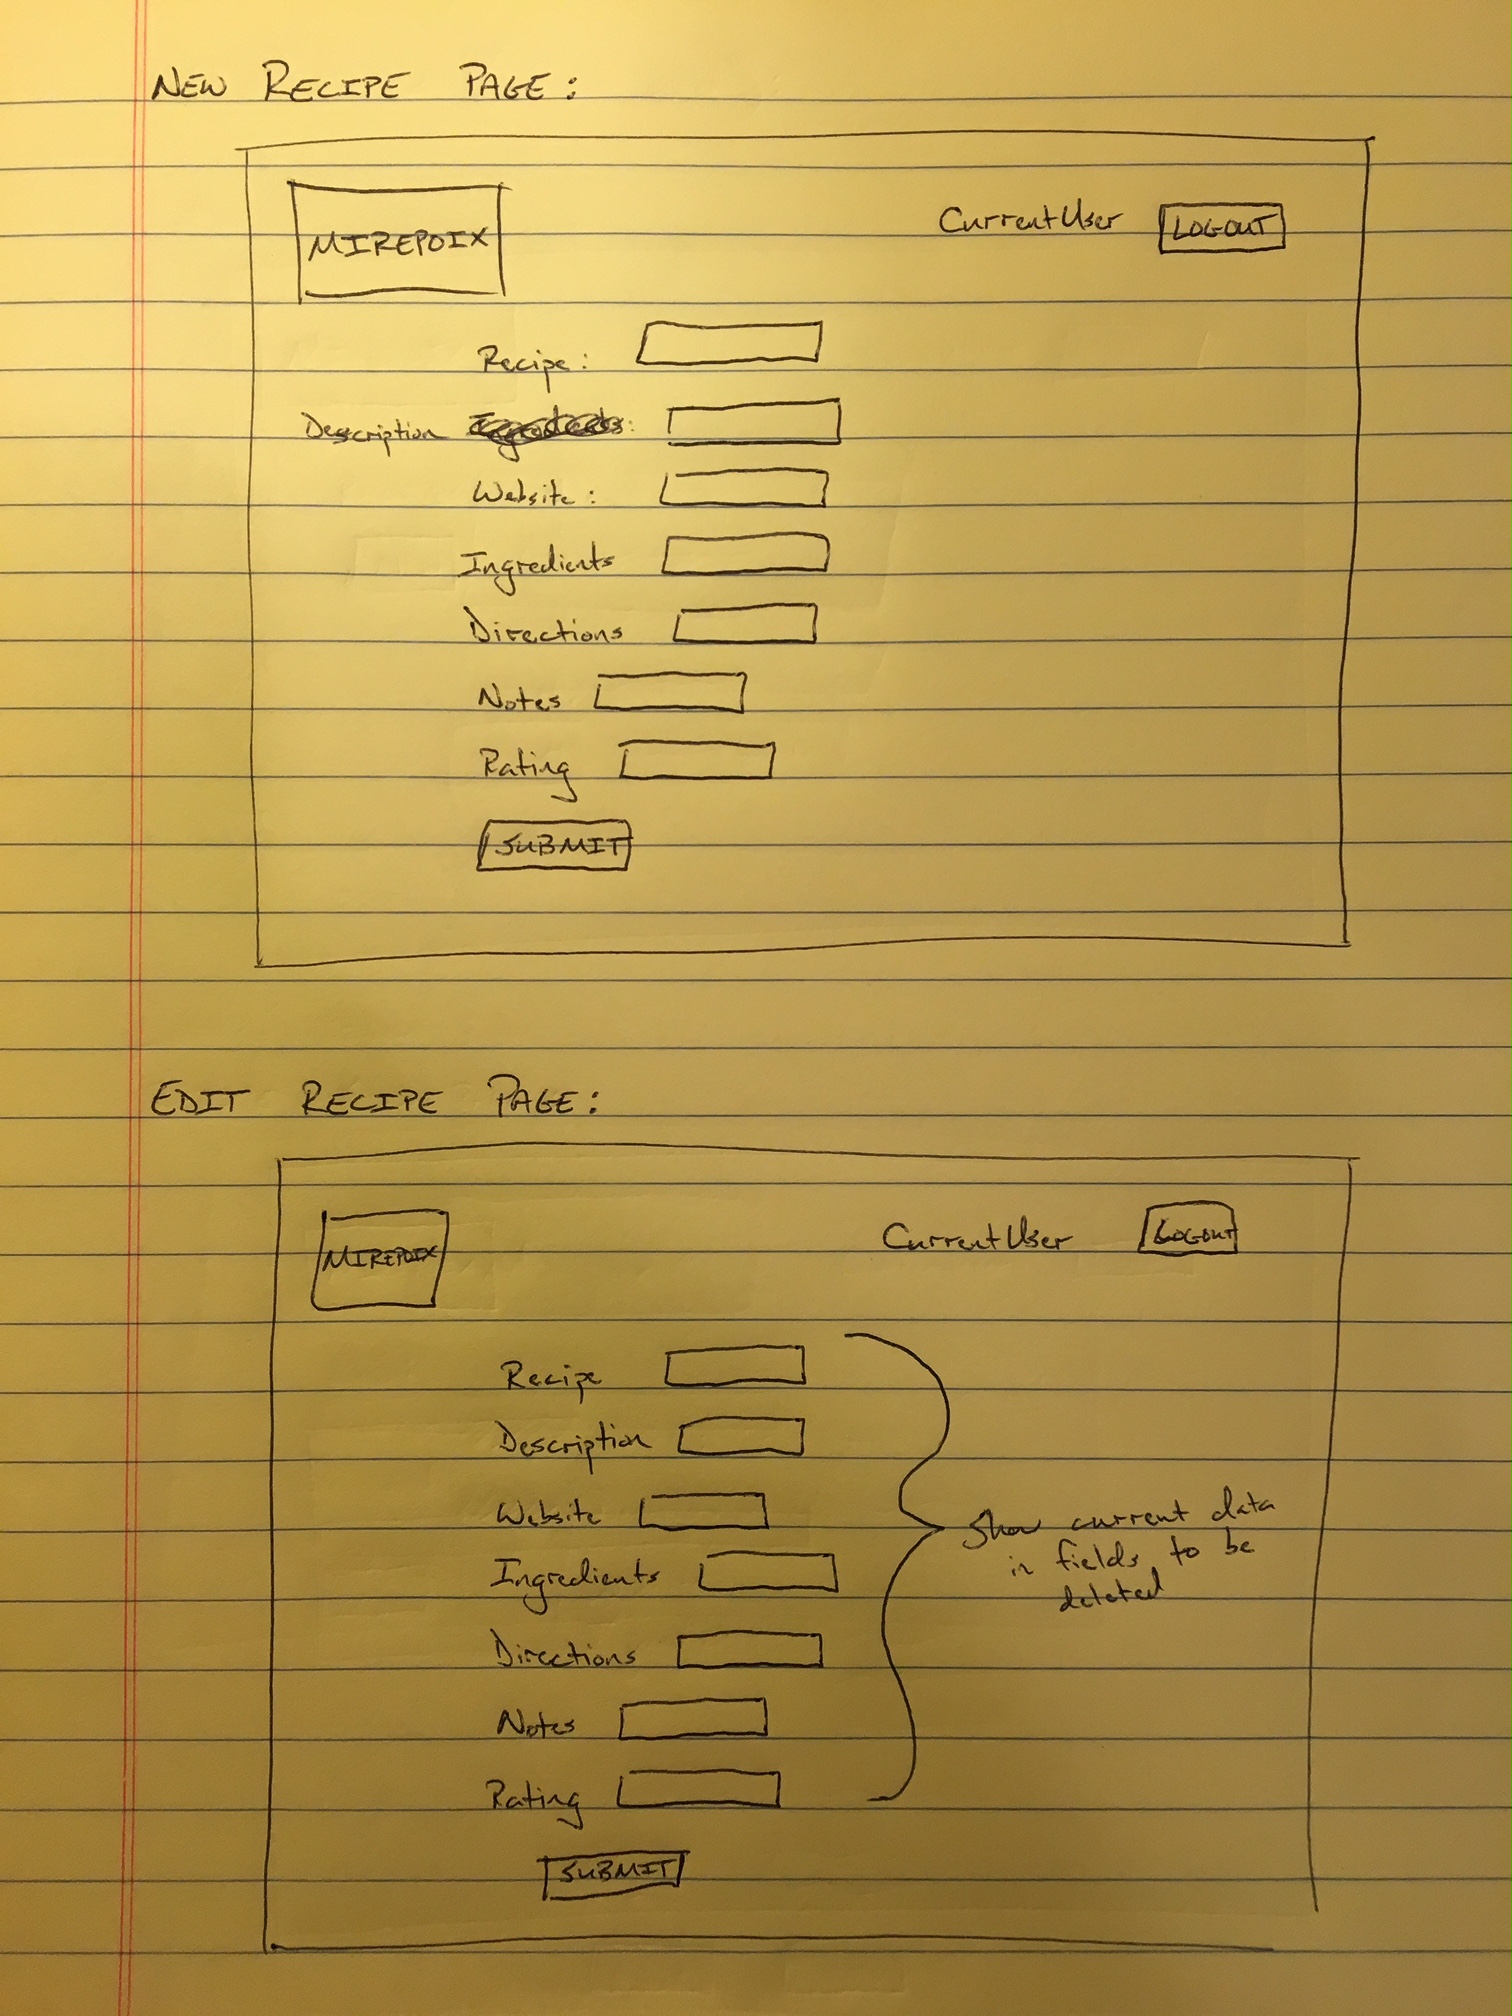 NEW RECIPE PAGE:
MIREPOIX
CurrentUser LOGOUT
Recipe:
Description Ingredients:
Website:
Ingredients
Directions
Notes
Rating
SUBMIT
EDIT RECIPE PAGE:
MIREPOIX
CurrentUser LOGOUT
Recipe
Description
Website
Ingredients
Directions
Notes
Rating
SUBMIT
Show current data
in fields to be
deleted